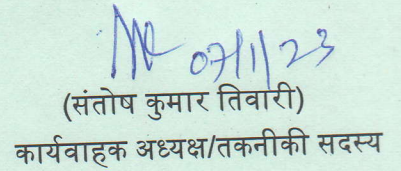 07/11/23
(संतोष कुमार तिवारी)
कार्यवाहक अध्यक्ष/तकनीकी सदस्य